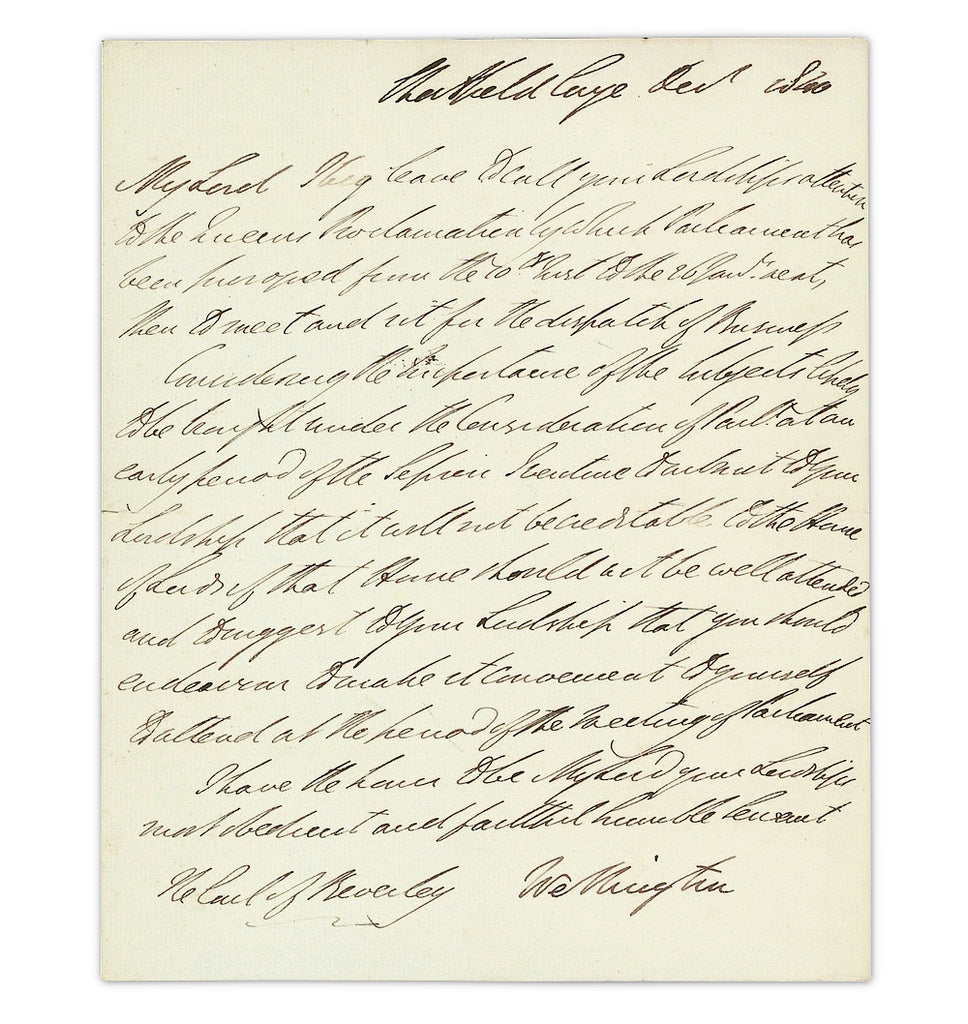 Strathfield Saye Decr 1840
My Lord I beg leave to call your Lordship's attention
to the Queen's Proclamation by which Parliament has
been prorogued from the 10th Inst to the 26 Janry next,
then to meet and sit for the dispatch of Business
Considering the importance of the Subjects likely
to be brought under the Consideration of Parlt. at an
early period of the Session I venture to submit to your
Lordship that it will not be creditable to the House
of Lords if that House should not be well attended
and to suggest to your Lordship that you should
endeavour to make it convenient to yourself
to attend at the period of the Meeting of Parliament
I have the honor to be My Lord your Lordship's
most obedient and faithful humble Servant
The Earl of Beverley Wellington